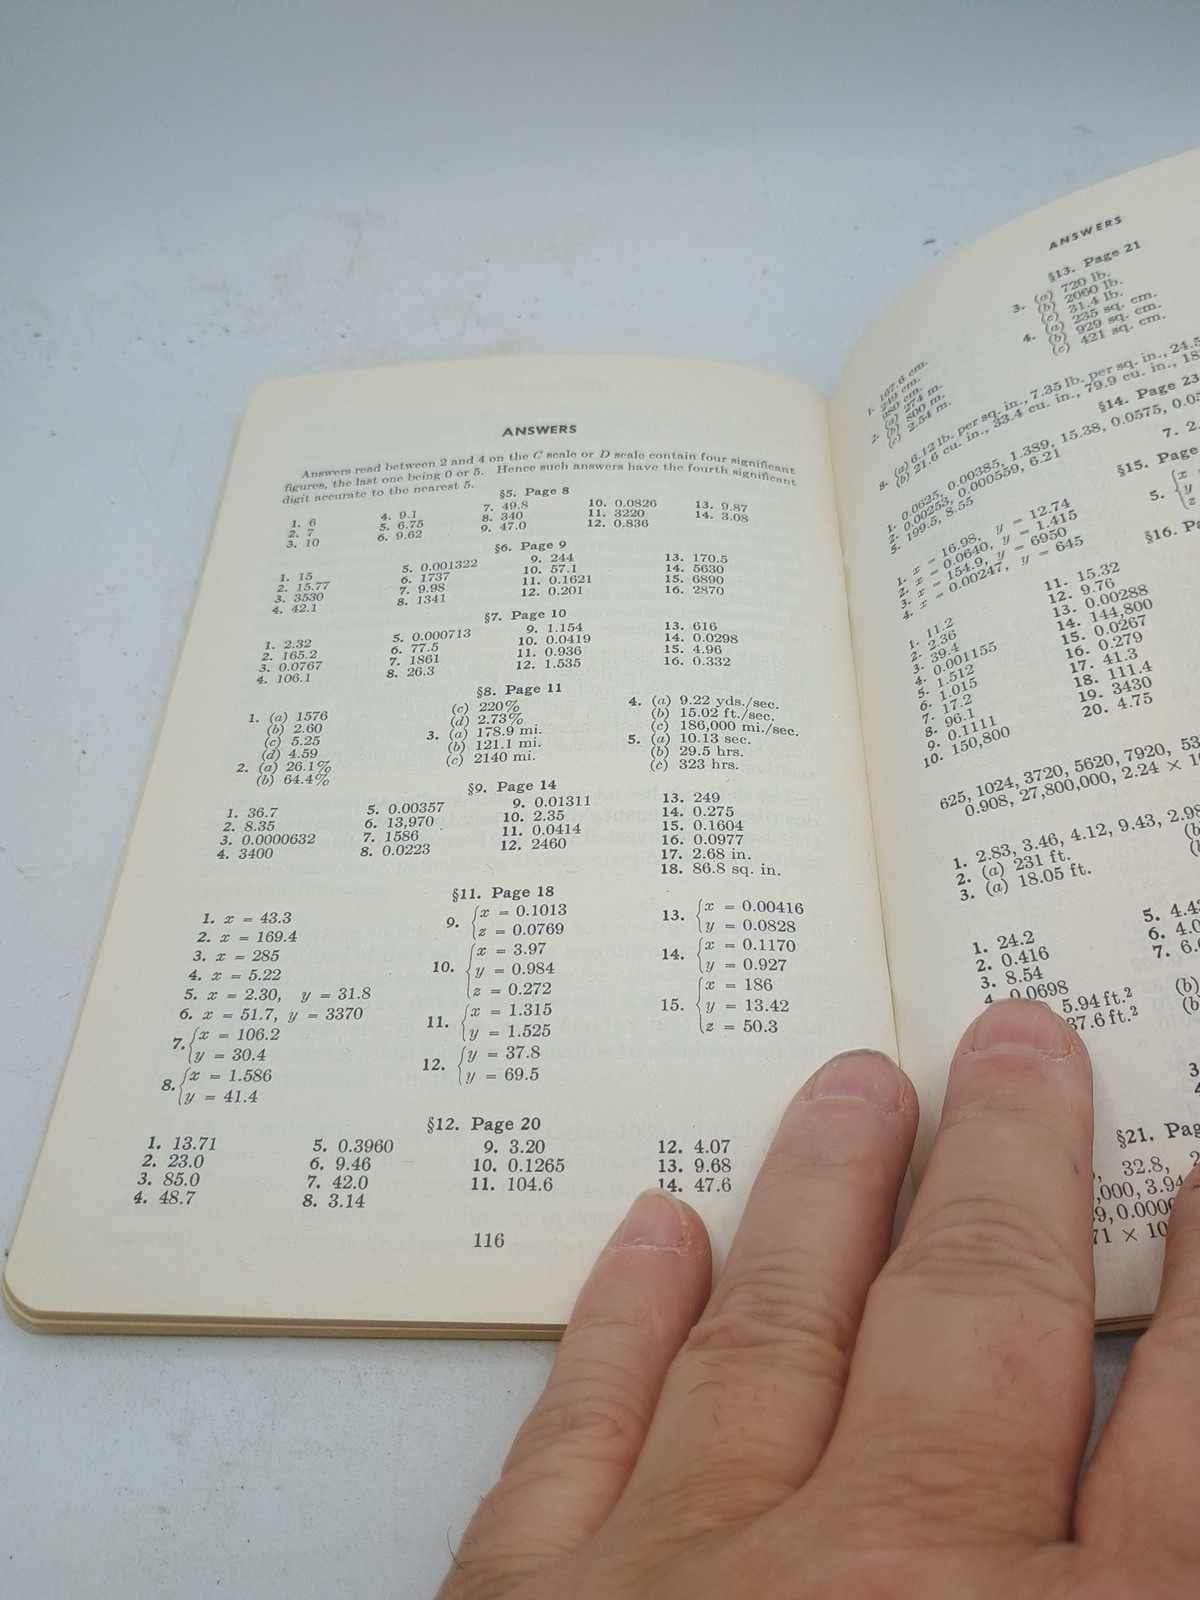 ANSWERS
Answers read between 2 and 4 on the C scale or D scale contain four significant
figures, the last one being 0 or 5. Hence such answers have the fourth significant
digit accurate to the nearest 5.
§5. Page 8
1. 6
2. 7
3. 10
4. 9.1
5. 6.75
6. 9.62
7. 49.8
8. 340
9. 47.0
10. 0.0826
11. 3220
12. 0.836
13. 9.87
14. 3.08
§6. Page 9
1. 15
2. 15.77
3. 3530
4. 42.1
5. 0.001322
6. 1737
7. 9.98
8. 1341
9. 244
10. 57.1
11. 0.1621
12. 0.201
13. 170.5
14. 5630
15. 6890
16. 2870
§7. Page 10
1. 2.32
2. 165.2
3. 0.0767
4. 106.1
5. 0.000713
6. 77.5
7. 1861
8. 26.3
9. 1.154
10. 0.0419
11. 0.936
12. 1.535
13. 616
14. 0.0298
15. 4.96
16. 0.332
§8. Page 11
1. (a) 1576
(b) 2.60
(c) 5.25
(d) 4.59
2. (a) 26.1%
(b) 64.4%
(c) 220%
(d) 2.73%
3. (a) 178.9 mi.
(b) 121.1 mi.
(c) 2140 mi.
4. (a) 9.22 yds./sec.
(b) 15.02 ft./sec.
(c) 186,000 mi./sec.
5. (a) 10.13 sec.
(b) 29.5 hrs.
(c) 323 hrs.
§9. Page 14
1. 36.7
2. 8.35
3. 0.0000632
4. 3400
5. 0.00357
6. 13,970
7. 1586
8. 0.0223
9. 0.01311
10. 2.35
11. 0.0414
12. 2460
13. 249
14. 0.275
15. 0.1604
16. 0.0977
17. 2.68 in.
18. 86.8 sq. in.
§11. Page 18
1. x = 43.3
2. x = 169.4
3. x = 285
4. x = 5.22
5. x = 2.30, y = 31.8
6. x = 51.7, y = 3370
7. {x = 106.2
y = 30.4
8. {x = 1.586
y = 41.4
9. {x = 0.1013
z = 0.0769
10. {x = 3.97
y = 0.984
z = 0.272
11. {x = 1.315
y = 1.525
12. {y = 37.8
y = 69.5
13. {x = 0.00416
y = 0.0828
14. {x = 0.1170
y = 0.927
15. {x = 186
y = 13.42
z = 50.3
§12. Page 20
1. 13.71
2. 23.0
3. 85.0
4. 48.7
5. 0.3960
6. 9.46
7. 42.0
8. 3.14
9. 3.20
10. 0.1265
11. 104.6
12. 4.07
13. 9.68
14. 47.6
116
ANSWERS
§13. Page 21
1. 167.6 cm.
249 cm.
980 cm.
2. (a) 274 m.
(b) 800 m.
(c) 2.54 m.
3. (a) 720 lb.
(b) 2060 lb.
(c) 31.4 lb.
4. (a) 235 sq. cm.
(b) 929 sq. cm.
(c) 421 sq. cm.
(a) 6.12 lb. per sq. in., 7.35 lb. per sq. in., 24.5
(b) 21.6 cu. in., 33.4 cu. in., 79.9 cu. in., 18
§14. Page 23
1. 0.0625, 0.00385, 1.389, 15.38, 0.0575, 0.05
2. 0.00253, 0.000559, 6.21
5. 199.5, 8.55
7. 2.
§15. Page
1. x = 16.98, y = 12.74
2. x = 0.0640, y = 1.415
3. x = 154.9, y = 6950
4. x = 0.00247, y = 645
5. {x
y
z
§16. Pa
1. 11.2
2. 2.36
3. 39.4
4. 0.001155
5. 1.512
6. 1.015
7. 17.2
8. 96.1
9. 0.1111
10. 150,800
11. 15.32
12. 9.76
13. 0.00288
14. 144,800
15. 0.0267
16. 0.279
17. 41.3
18. 111.4
19. 3430
20. 4.75
625, 1024, 3720, 5620, 7920, 53
0.908, 27,800,000, 2.24 × 1
1. 2.83, 3.46, 4.12, 9.43, 2.98
2. (a) 231 ft. (b
3. (a) 18.05 ft. (b
1. 24.2
2. 0.416
3. 8.54
4. 0.0698
5.94 ft.²
37.6 ft.²
5. 4.43
6. 4.0
7. 6.0
(b)
(b)
3
4
§21. Pag
32.8, 2
,000, 3.94
9, 0.0000
71 × 10